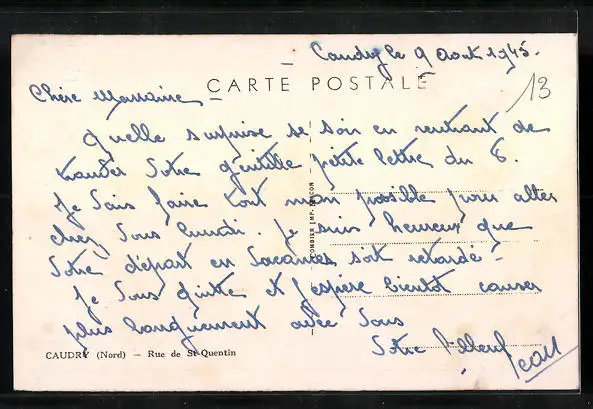 Caudry le 9 Aout 1945.
CARTE POSTALE
13
Chère Marraine
Quelle surprise ce soir en rentrant de
trouver Votre gentille petite lettre du 8.
Je Vais faire tout mon possible pour aller
chez Vous lundi. Je suis heureux que
Votre départ en Vacances soit retardé -
Je Vous quitte et j'espère bientôt causer
plus longuement avec Vous
Votre filleul
Jean
CAUDRY (Nord) — Rue de St-Quentin